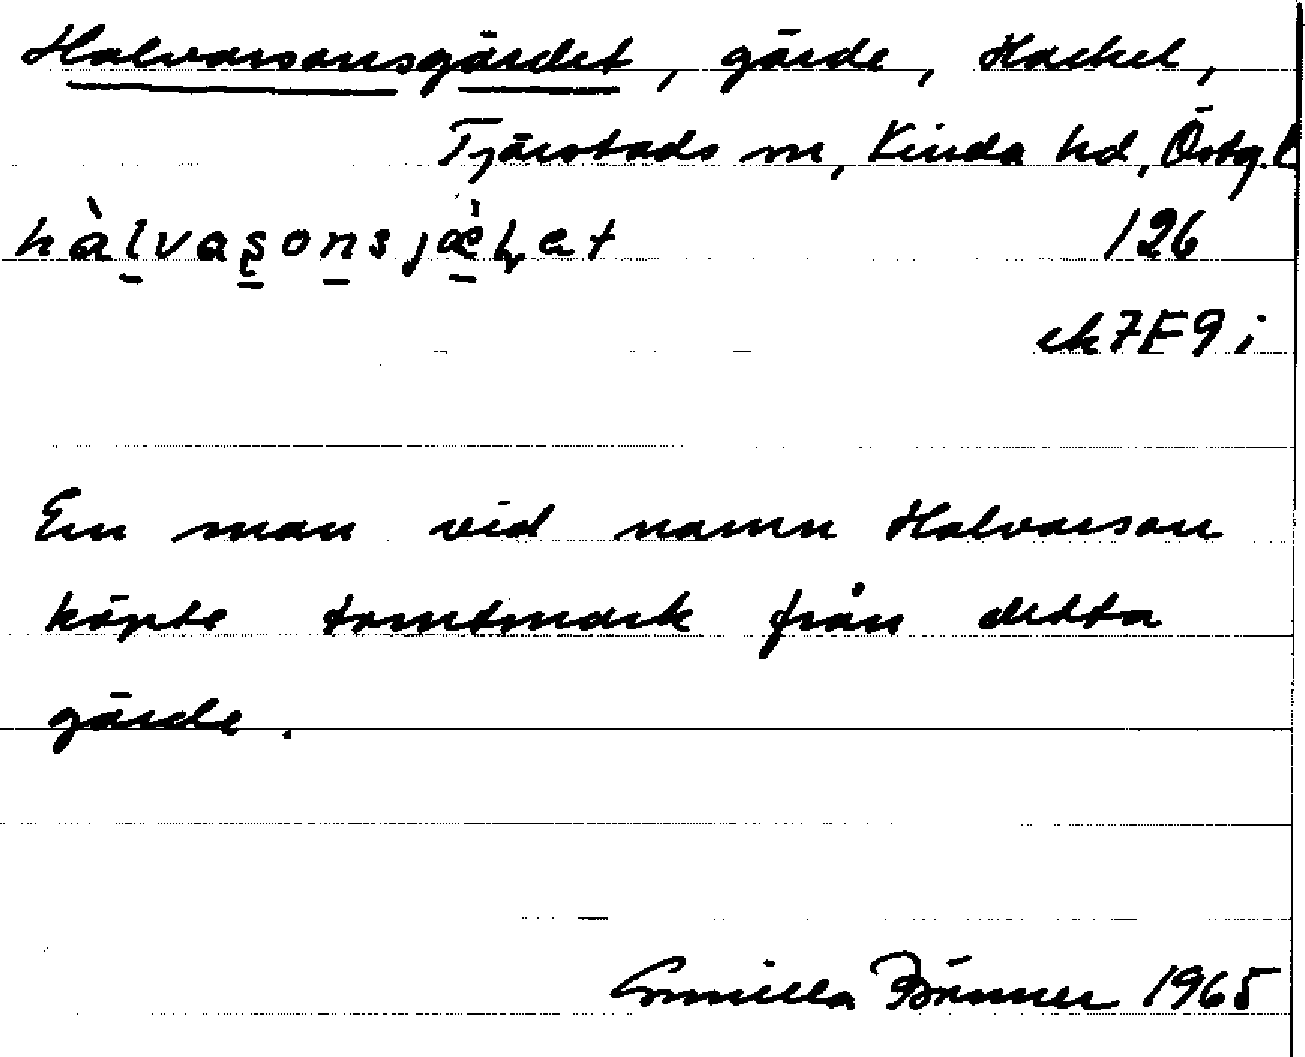 Halvarsonsgärdet, gärde, Hackel,
Tjärstads sn, Kinda hd, Östg.l
hàlvasonsjæ̀ḥet
126
ek 7F9i
En man vid namn Halvarson
köpte tomtmark från detta
gärde.
Gunilla Bönner 1965